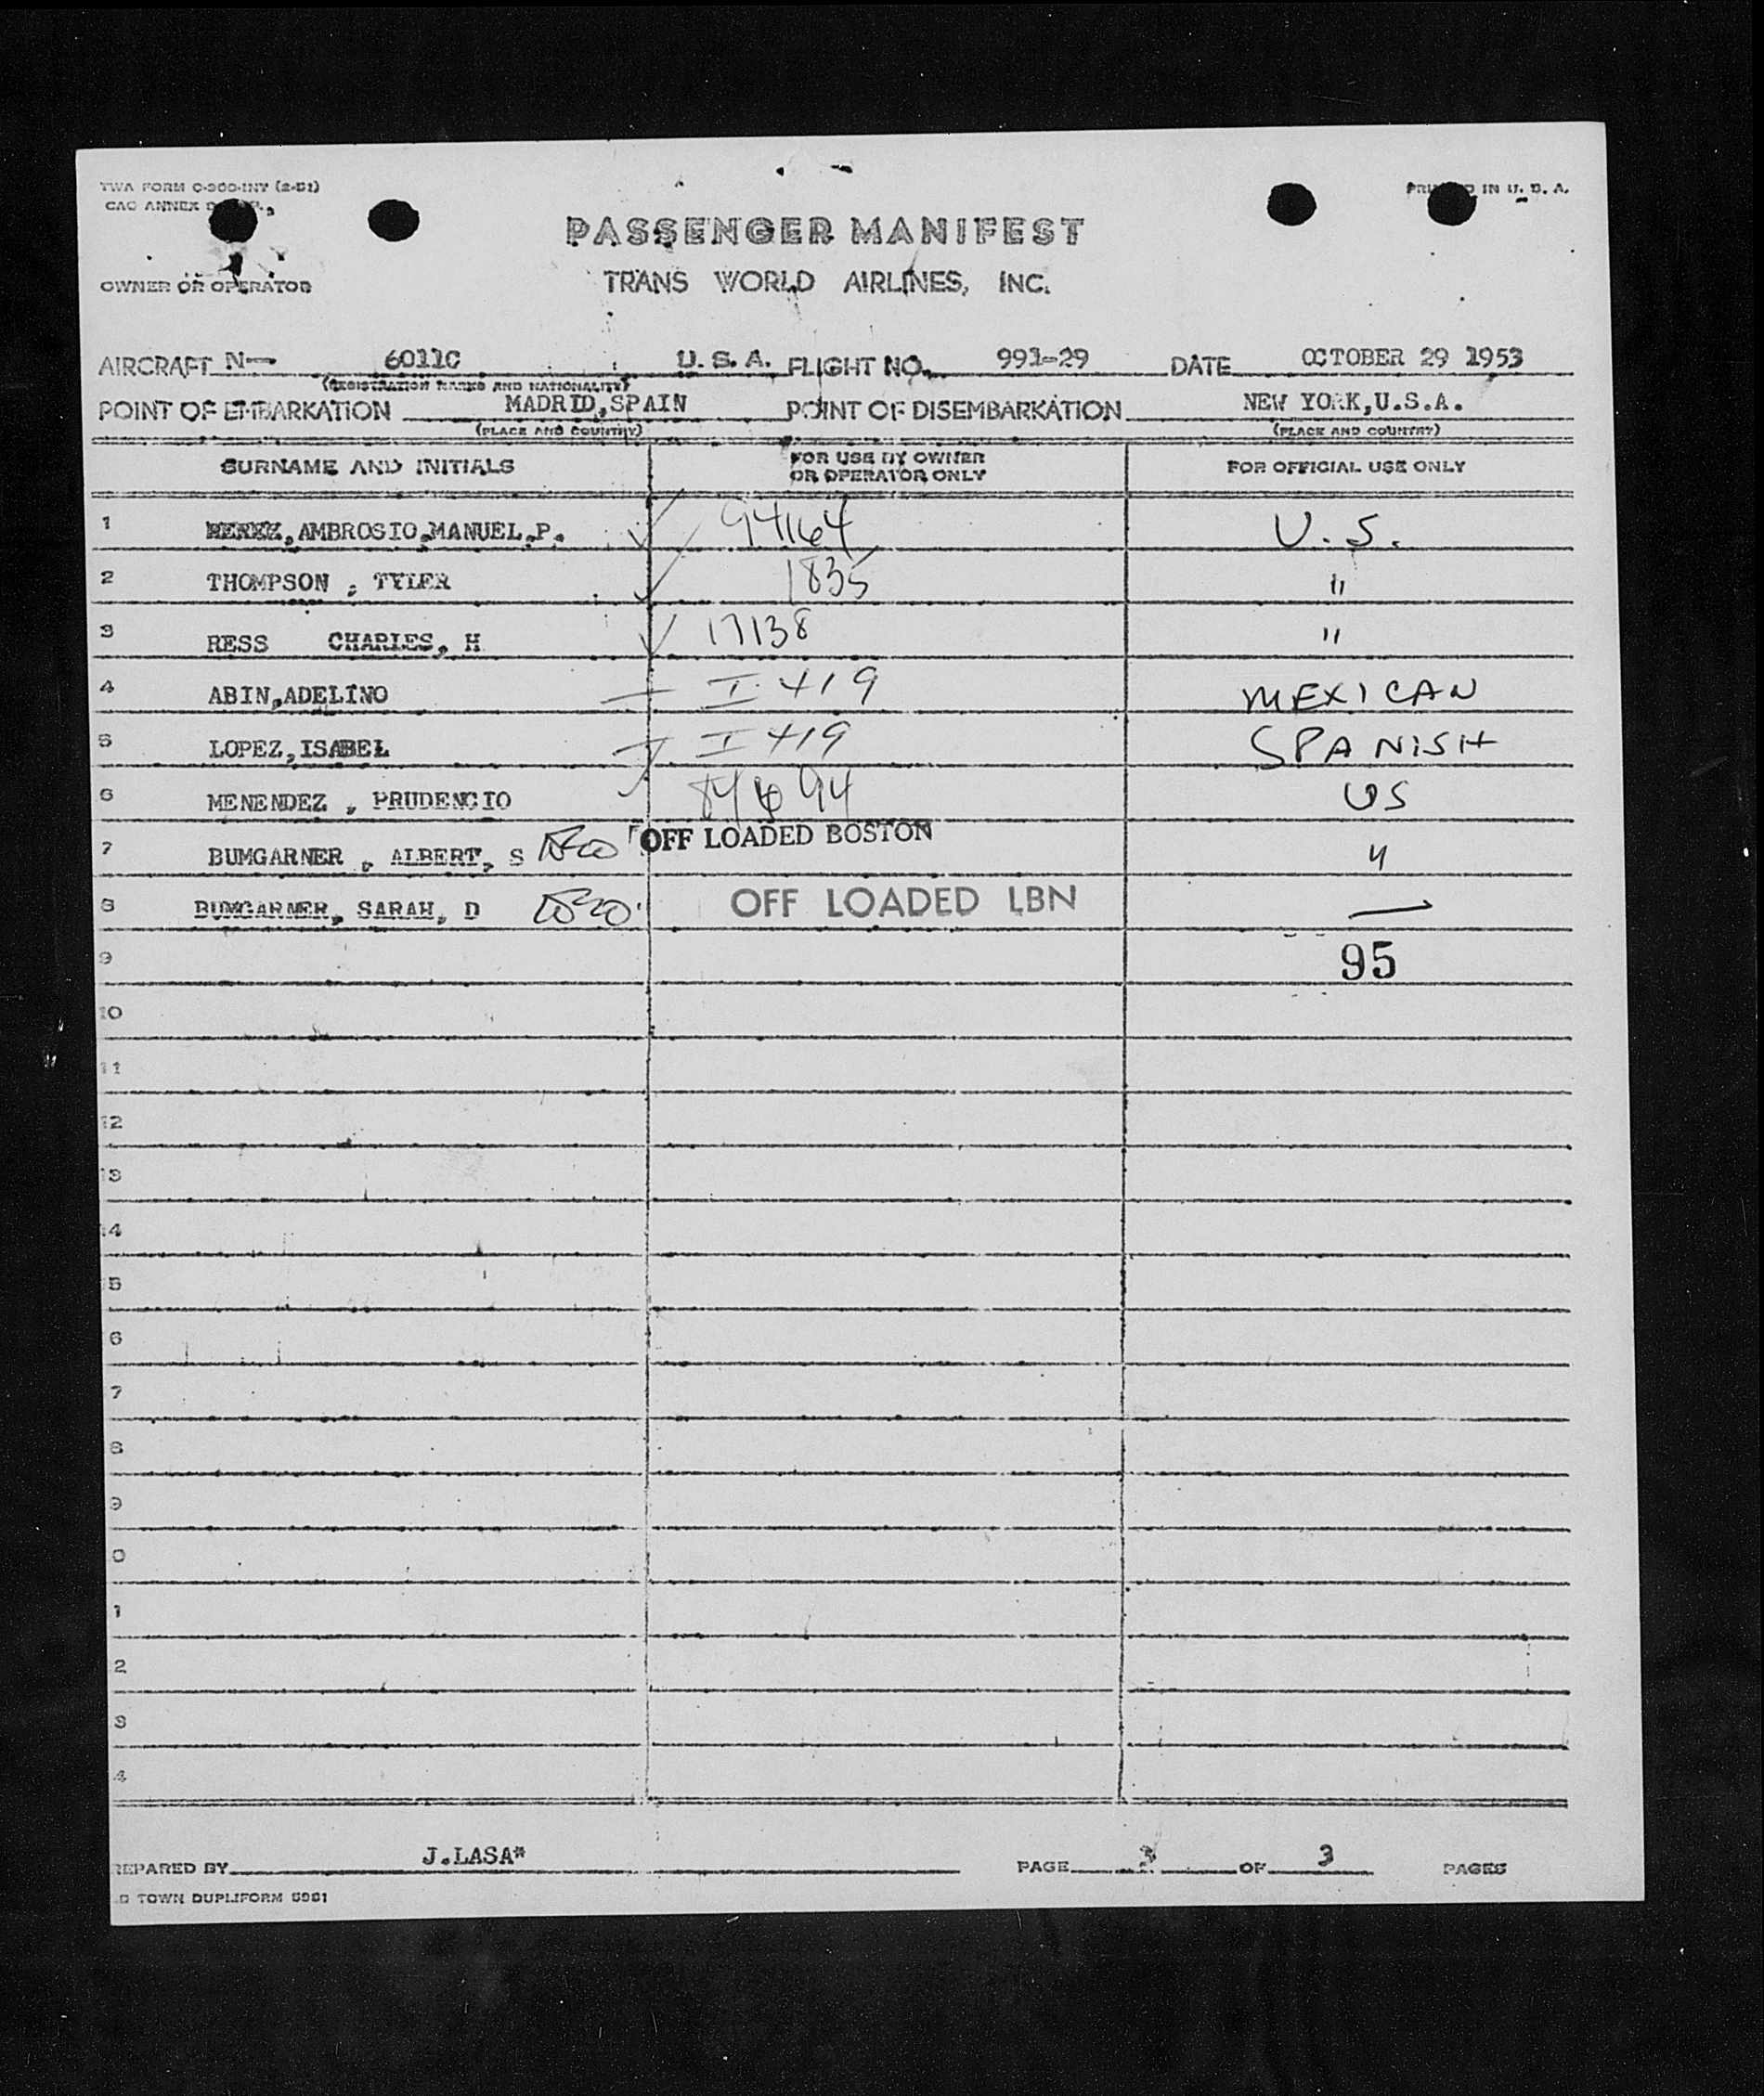 TWA FORM C-360-INT (2-51) PRINTED IN U. S. A.
CAO ANNEX
PASSENGER MANIFEST
OWNER OR OPERATOR TRANS WORLD AIRLINES, INC.
AIRCRAFT N— 6011C U. S. A. FLIGHT NO. 991-29 DATE OCTOBER 29 1953
(REGISTRATION MARKS AND NATIONALITY)
POINT OF EMBARKATION MADRID,SPAIN POINT OF DISEMBARKATION NEW YORK,U.S.A.
(PLACE AND COUNTRY) (PLACE AND COUNTRY)
SURNAME AND INITIALS FOR USE BY OWNER OR OPERATOR ONLY FOR OFFICIAL USE ONLY
1 AMBROSIO,MANUEL,P. 94164 U.S.
2 THOMPSON , TYLER 1835 "
3 RESS CHARLES, H 17138 "
4 ABIN,ADELINO — I 419 MEXICAN
5 LOPEZ,ISABEL I 419 SPANISH
6 MENENDEZ , PRUDENCIO US
7 BUMGARNER , ALBERT, S OFF LOADED BOSTON "
8 BUMGARNER, SARAH, D OFF LOADED LBN —
9 95
10
11
12
13
14
5
6
7
8
9
0
1
2
3
4
REPARED BY J.LASA* PAGE 3 OF 3 PAGES
TOWN DUPLIFORM 5981